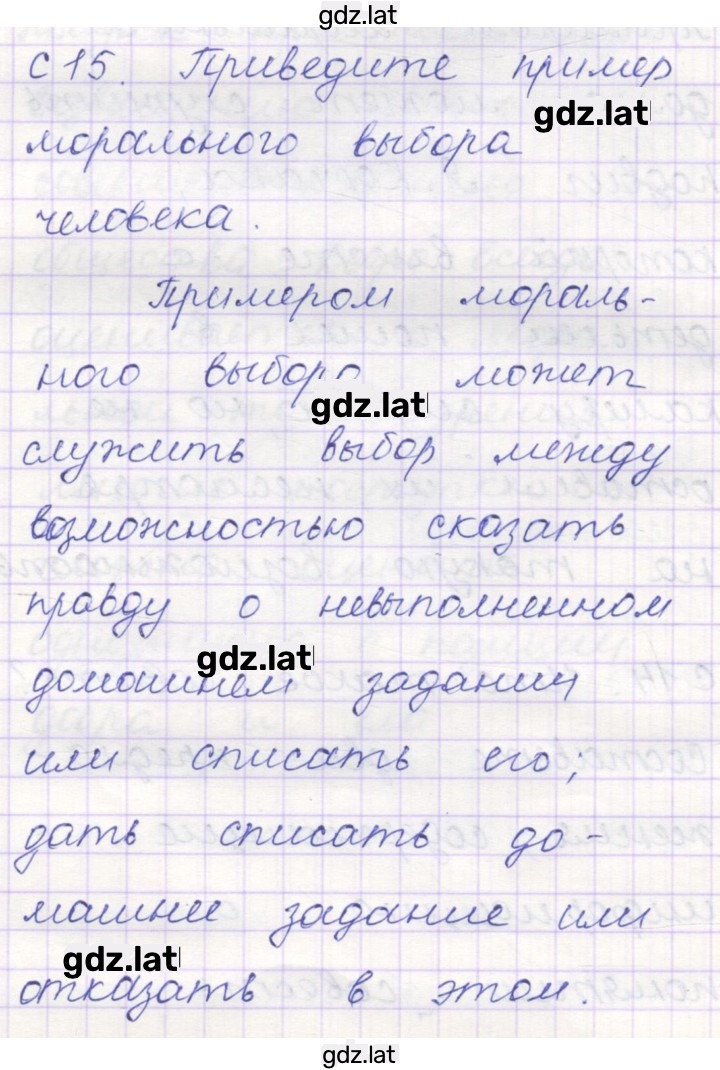 gdz.lat
С 15. Приведите пример
gdz.lat
морального выбора
человека.
Примером мораль-
ного выбора может
gdz.lat
служить выбор между
возможностью сказать
правду о невыполненном
gdz.lat
домашнем задании
или списать его;
дать списать до-
машнее задание или
gdz.lat
отказать в этом.
gdz.lat